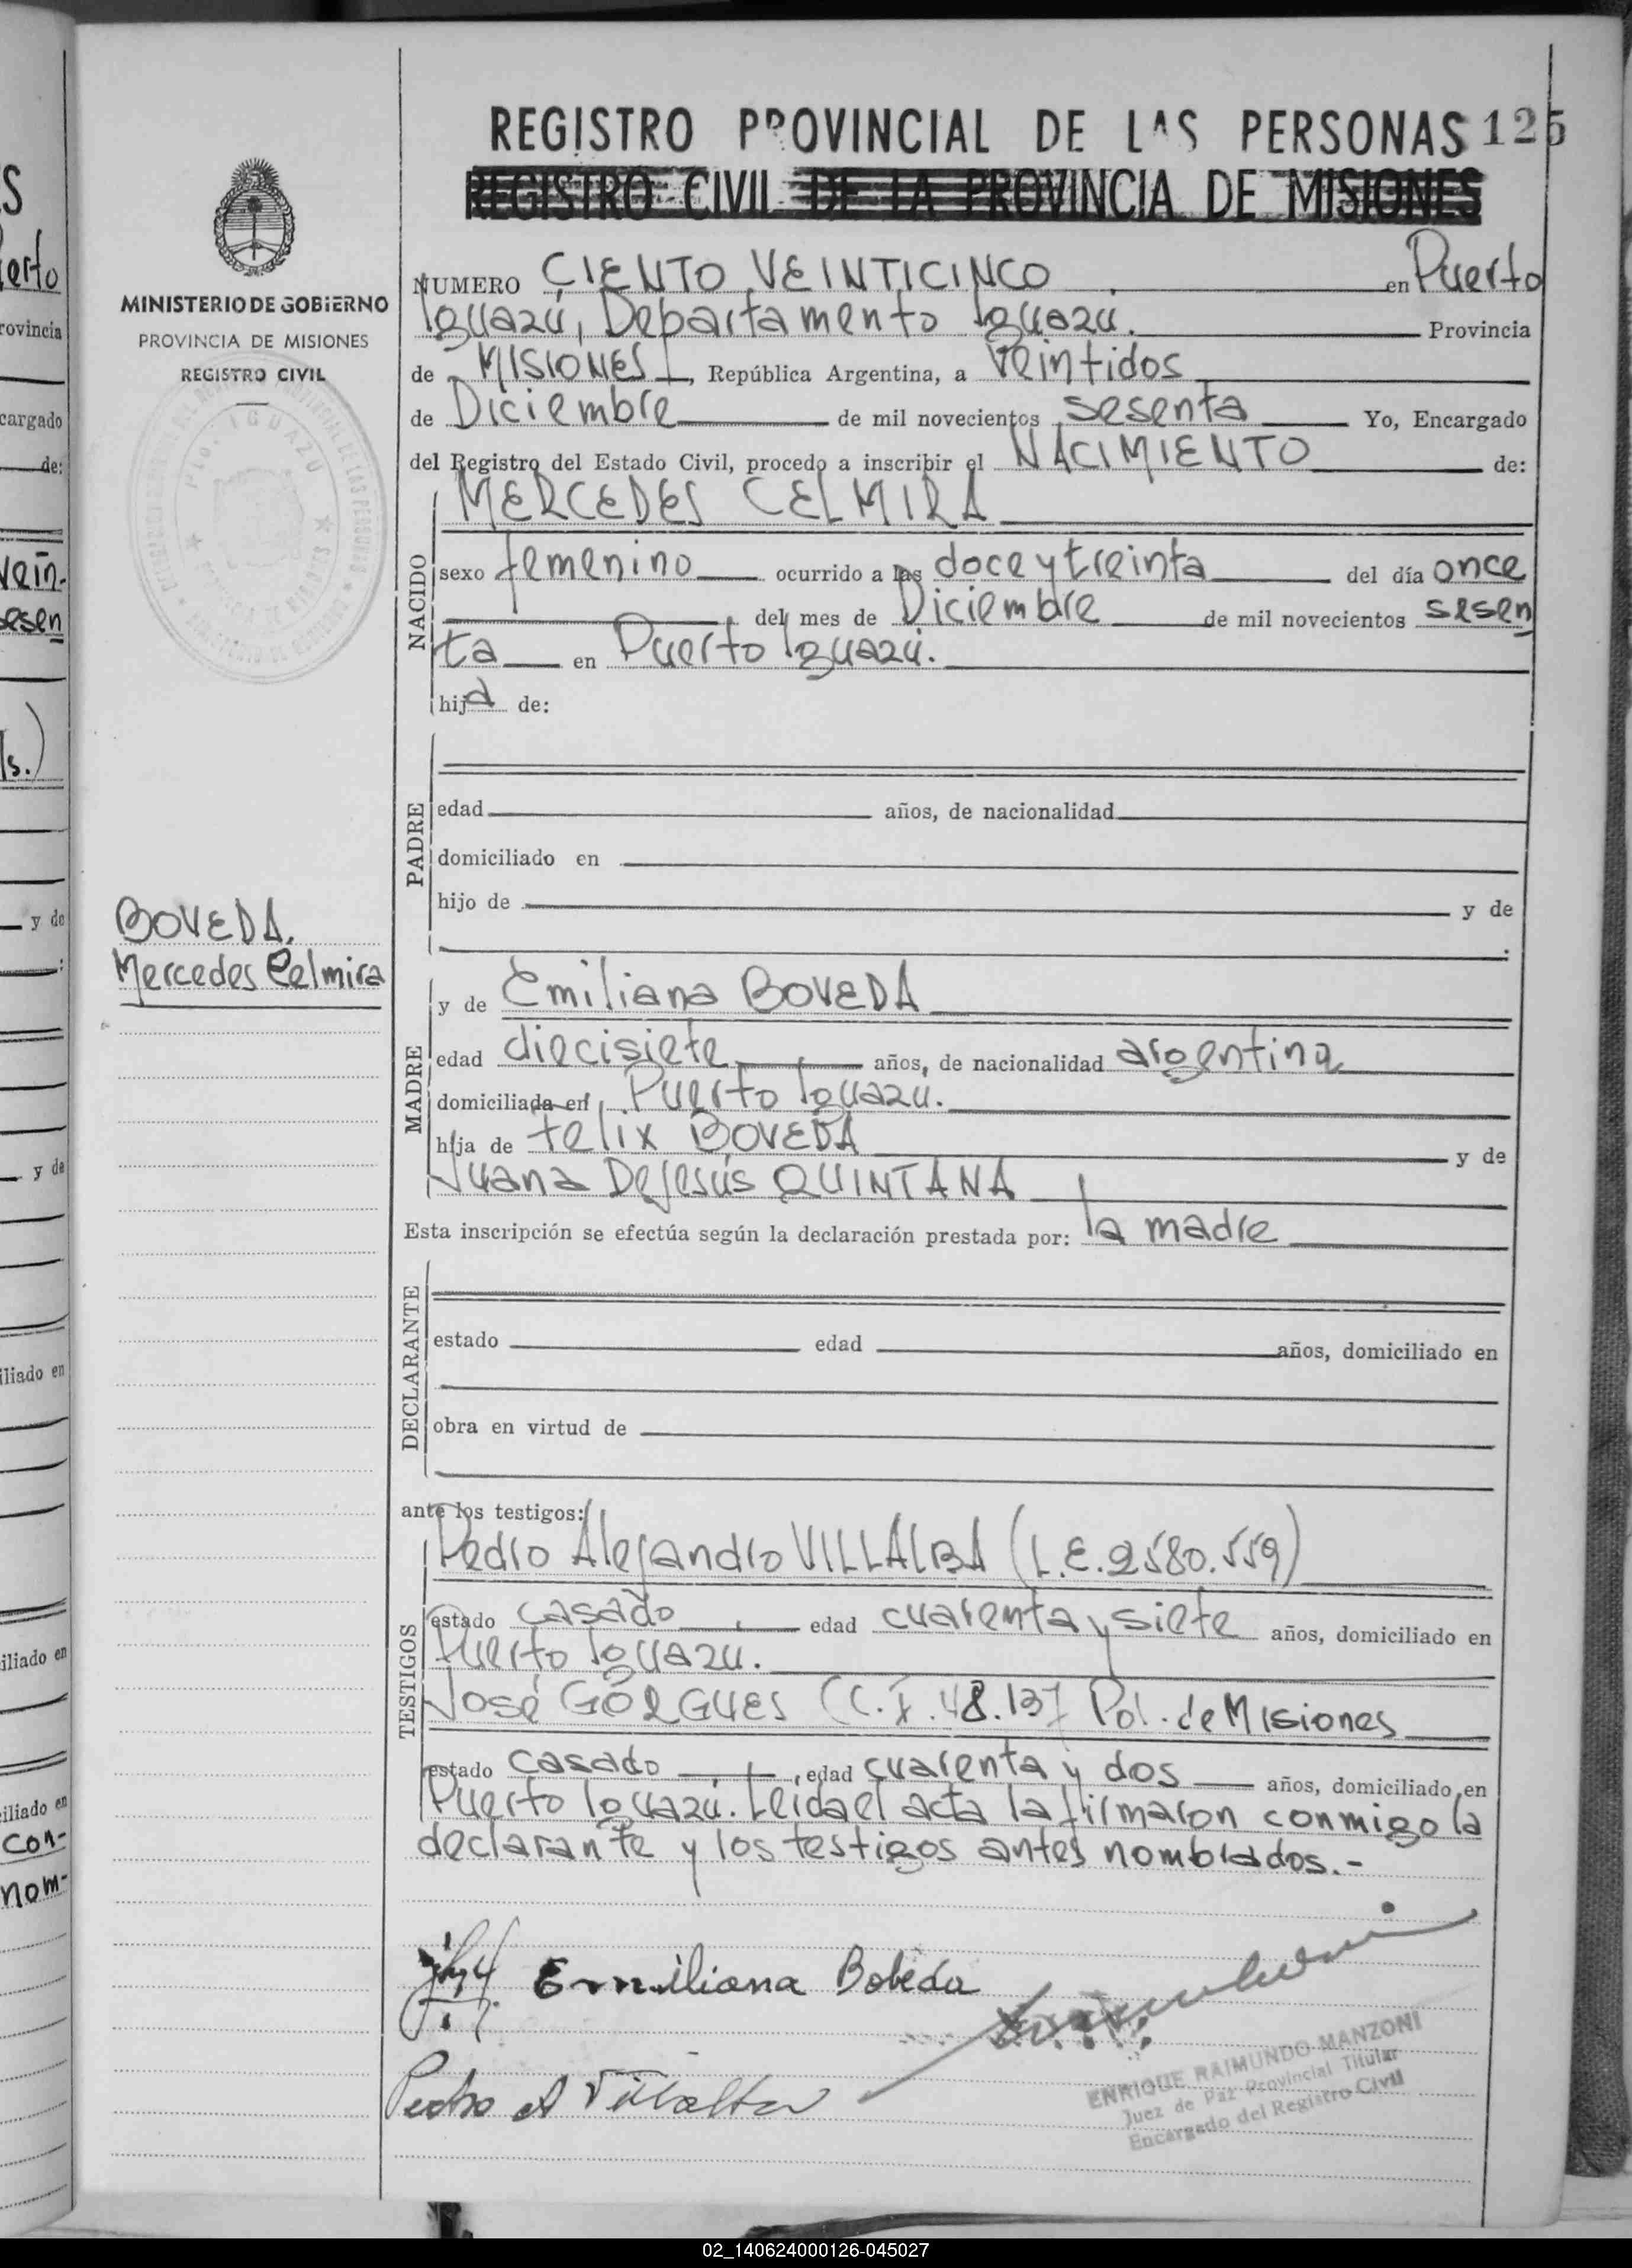 REGISTRO PROVINCIAL DE LAS PERSONAS 125
REGISTRO CIVIL DE LA PROVINCIA DE MISIONES
MINISTERIO DE GOBIERNO
PROVINCIA DE MISIONES
REGISTRO CIVIL
Pto. IGUAZU
BOVEDA,
Mercedes Celmira
NUMERO CIENTO VEINTICINCO en Puerto
Iguazú, Departamento Iguazú. Provincia
de MISIONES, República Argentina, a veintidos
de Diciembre de mil novecientos sesenta Yo, Encargado
del Registro del Estado Civil, procedo a inscribir el NACIMIENTO de:
NACIDO
MERCEDES CELMIRA
sexo femenino ocurrido a las doce y treinta del día once
del mes de Diciembre de mil novecientos sesen
ta en Puerto Iguazú.
hija de:
PADRE
edad años, de nacionalidad
domiciliado en
hijo de y de
MADRE
y de Emiliana BOVEDA
edad diecisiete años, de nacionalidad argentina
domiciliada en Puerto Iguazu.
hija de Felix BOVEDA y de
Juana DeJesús QUINTANA
Esta inscripción se efectúa según la declaración prestada por: la madre
DECLARANTE
estado edad años, domiciliado en
obra en virtud de
ante los testigos:
TESTIGOS
Pedro Alejandro VILLALBA (L.E. 2580.559)
estado casado edad cuarenta y siete años, domiciliado en
Puerto Iguazu.
José GÓRGUES (C.I. 48.137 Pol. de Misiones
estado casado, edad cuarenta y dos años, domiciliado en
Puerto Iguazú. Leida el acta la firmaron conmigo la
declarante y los testigos antes nombrados.-
Emiliana Bobeda
Pedro A Villalba
ENRIQUE RAIMUNDO MANZONI
Juez de Paz Provincial Titular
Encargado del Registro Civil
02_140624000126-045027